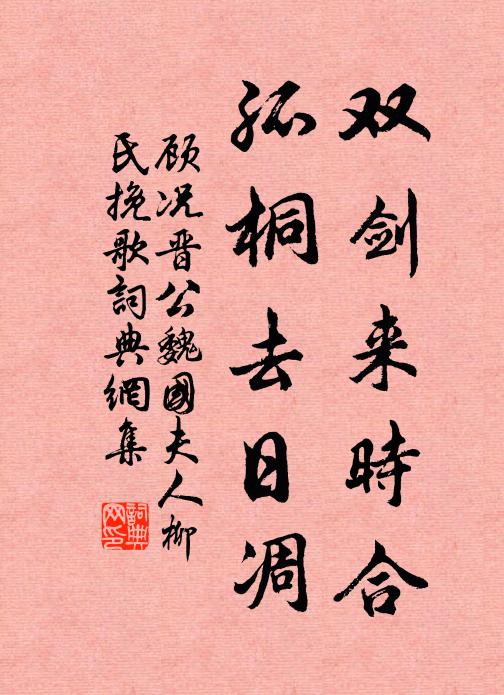 双剑来時合
孤桐去日凋
顾况晋公魏國夫人柳
氏挽歌詞典網集
詞典网印